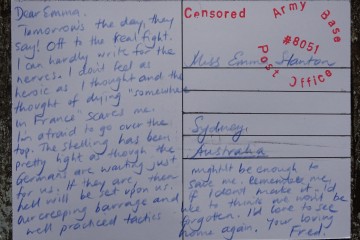 Dear Emma.
Tomorrows the day, they
say! Off to the real fight.
I can hardly write for the
nerves. I dont feel as
heroic as I thought and the
thought of dying "somewhere
in France" scares me.
I'm afraid to go over the
top. The shelling has been
pretty light as though the
Germans are waiting just
for us. If they are, then
hell will be set upon us.
Our creeping barrage and
well practiced tactics
Censored
Army Base
#8051
Post Office
Miss Emma Hanton
Sydney,
Australia
might be enough to
save me. Remember me
if I dont make it. I'd
like to think we wont be
forgoten. I'd love to see
home again. Your loving
Fred.